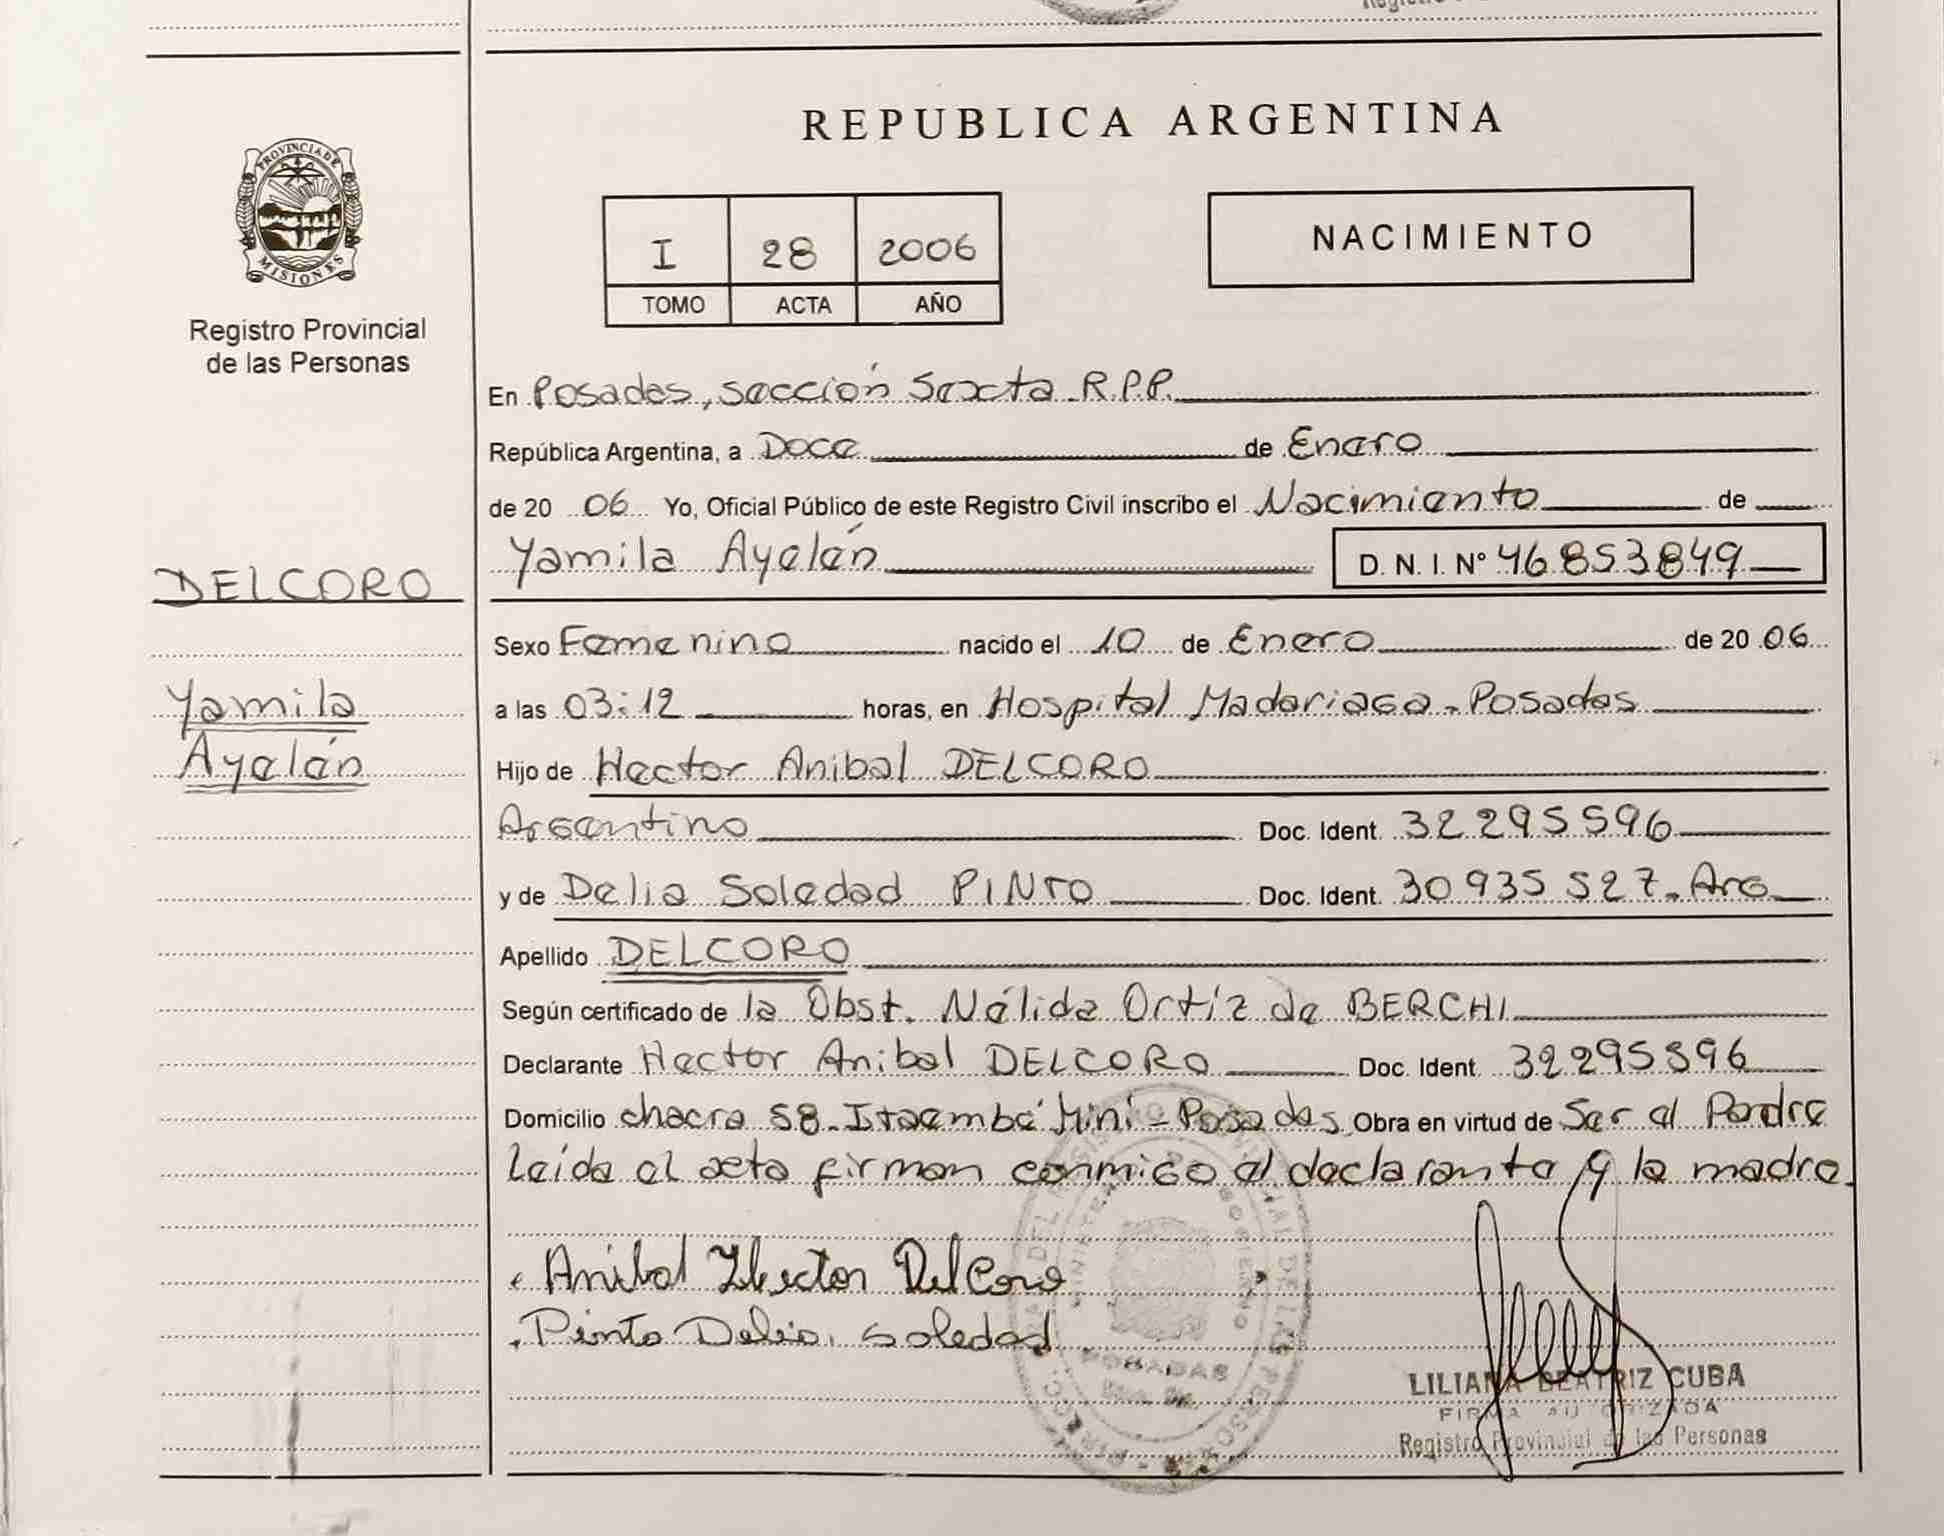 REPUBLICA ARGENTINA
PROVINCIA DE
MISIONES
Registro Provincial
de las Personas
I 28 2006
TOMO ACTA AÑO
NACIMIENTO
En Posadas, sección Sexta R.P.P.
República Argentina, a Doce de Enero
de 20 06 Yo, Oficial Público de este Registro Civil inscribo el Nacimiento de
Yamila Ayelén D. N. I. Nº 46 853849
DELCORO
Yamila
Ayelén
Sexo Femenino nacido el 10 de Enero de 20 06
a las 03:12 horas, en Hospital Madariaga - Posadas
Hijo de Hector Anibal DELCORO
Argentino Doc. Ident. 32 295 596
y de Delia Soledad PINTO Doc. Ident. 30 935 527. Arg
Apellido DELCORO
Según certificado de la Obst. Nélida Ortíz de BERCHI
Declarante Hector Anibal DELCORO Doc. Ident. 32295596
Domicilio chacra 58 - Itaembé Miní - Posadas Obra en virtud de Ser el Padre
Leída el acta firman conmigo el declarante y la madre
Anibal Hector DelCoro
Pinto Delia Soledad
POSADAS
LILIANA BEATRIZ CUBA
FIRMA AUTORIZADA
Registro Provincial de las Personas